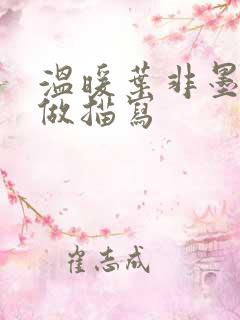 温暖葉非墨
做描寫
崔志成